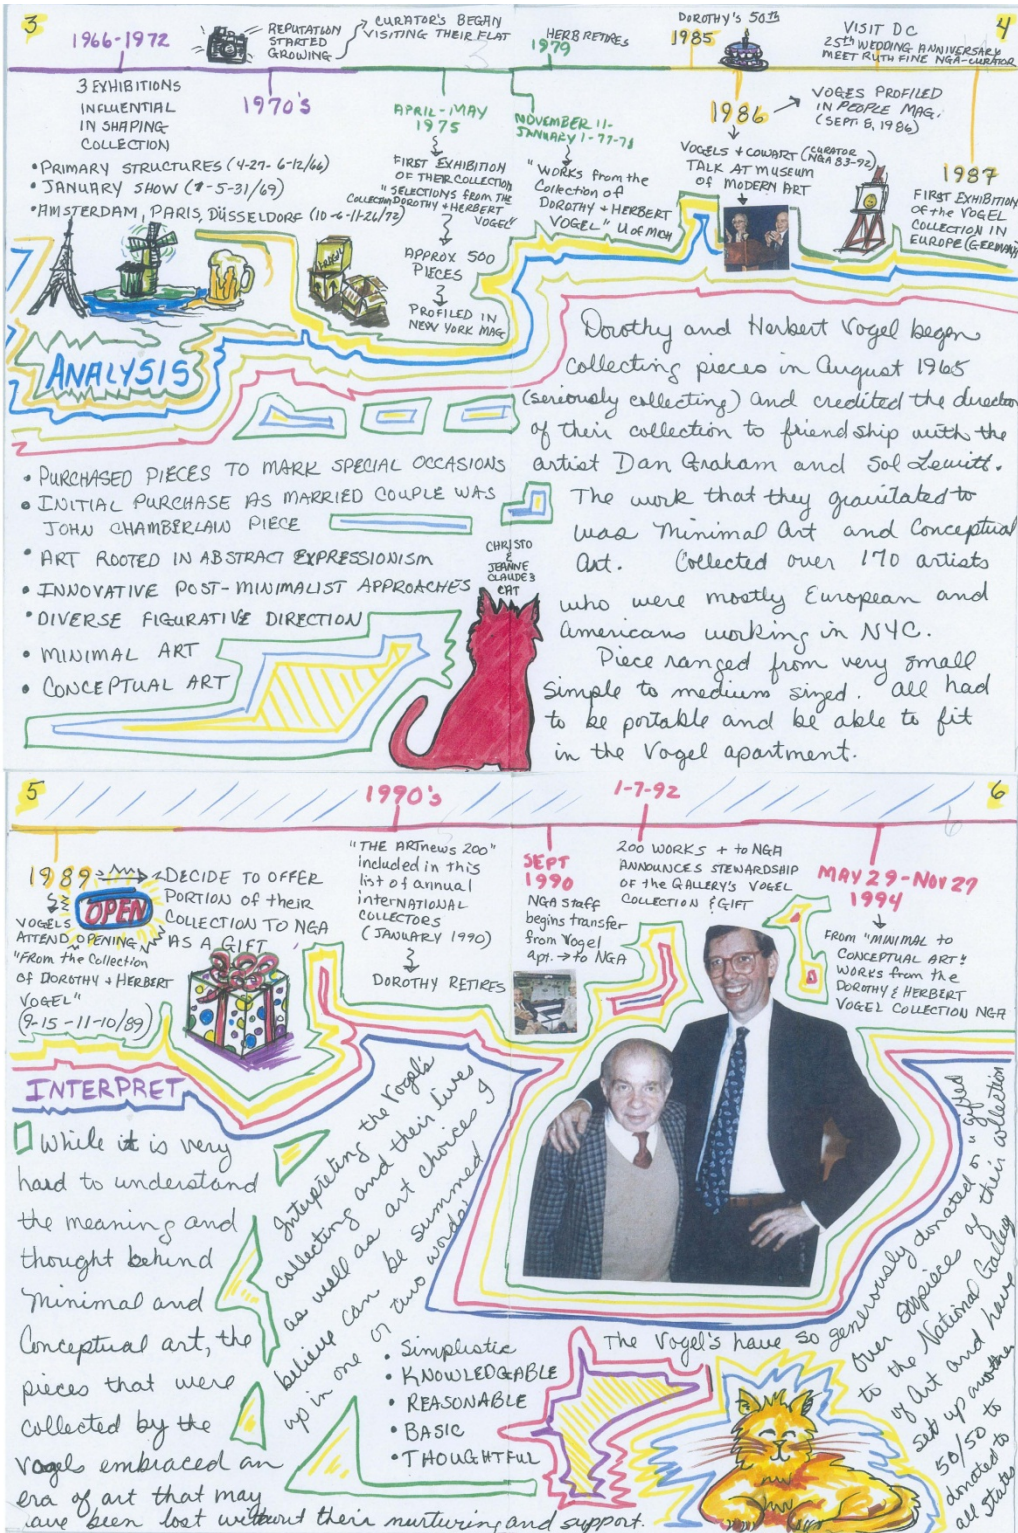 3
1966-1972
REPUTATION
STARTED
GROWING
CURATOR'S BEGAN
VISITING THEIR FLAT
HERB RETIRES
1979
3 EXHIBITIONS
INFLUENTIAL
IN SHAPING
COLLECTION
• PRIMARY STRUCTURES (4-27-6-12/66)
• JANUARY SHOW (1-5-31/69)
• AMSTERDAM, PARIS, DÜSSELDORF (10-6-11-26/72)
1970'S
APRIL-MAY
1975
FIRST EXHIBITION
OF THEIR COLLECTION
"SELECTIONS FROM THE
COLLECTION DOROTHY + HERBERT
VOGEL"
APPROX 500
PIECES
PROFILED IN
NEW YORK MAG
NOVEMBER 11-
JANUARY 1-77-78
"WORKS from the
Collection of
DOROTHY + HERBERT
VOGEL" U of MICH
4
DOROTHY'S 50th
1985
VISIT DC
25th WEDDING ANNIVERSARY
MEET RUTH FINE NGA-CURATOR
1986
VOGES PROFILED
IN PEOPLE MAG.
(SEPT. 8, 1986)
VOGELS & COWART (CURATOR
NGA 83-92)
TALK AT MUSEUM
OF MODERN ART
1987
FIRST EXHIBITION
OF the VOGEL
COLLECTION IN
EUROPE (GERMANY)
ANALYSIS
• PURCHASED PIECES TO MARK SPECIAL OCCASIONS
• INITIAL PURCHASE AS MARRIED COUPLE WAS
JOHN CHAMBERLAIN PIECE
• ART ROOTED IN ABSTRACT EXPRESSIONISM
• INNOVATIVE POST-MINIMALIST APPROACHES
• DIVERSE FIGURATIVE DIRECTION
• MINIMAL ART
• CONCEPTUAL ART
CHRISTO
&
JEANNE
CLAUDE'S
CAT
Dorothy and Herbert Vogel began
collecting pieces in August 1965
(seriously collecting) and credited the direction
of their collection to friendship with the
artist Dan Graham and Sol Lewitt.
The work that they gravitated to
was Minimal Art and Conceptual
Art. Collected over 170 artists
who were mostly European and
Americans working in NYC.
Piece ranged from very small
simple to medium sized. All had
to be portable and be able to fit
in the Vogel apartment.
5
1989
VOGELS
ATTEND OPENING
"From the Collection
of DOROTHY + HERBERT
VOGEL"
(9-15-11-10/89)
OPEN
DECIDE TO OFFER
PORTION of their
COLLECTION TO NGA
AS A GIFT
1990's
"THE ARTnews 200"
included in this
list of annual
international
COLLECTORS
(JANUARY 1990)
DOROTHY RETIRES
6
SEPT
1990
NGA STAFF
begins transfer
from Vogel
apt. → to NGA
1-7-92
200 WORKS + to NGA
ANNOUNCES STEWARDSHIP
OF the GALLERY'S VOGEL
COLLECTION & GIFT
MAY 29-NOV 27
1994
FROM "MINIMAL to
CONCEPTUAL ART:
WORKS from the
DOROTHY & HERBERT
VOGEL COLLECTION NGA
INTERPRET
While it is very
hard to understand
the meaning and
thought behind
Minimal and
Conceptual art, the
pieces that were
collected by the
Vogels embraced an
era of art that may
have been lost without their nurturing and support.
Interpreting the Vogel's
collecting and their lives
as well as art choices I
believe can be summed
up in one or two words
• Simplistic
• KNOWLEDGABLE
• REASONABLE
• BASIC
• THOUGHTFUL
The Vogel's have so generously donated or "gifted
over pieces of their collection
to the National Gallery
of Art and have
set up another
50/50 to
donated to
all States